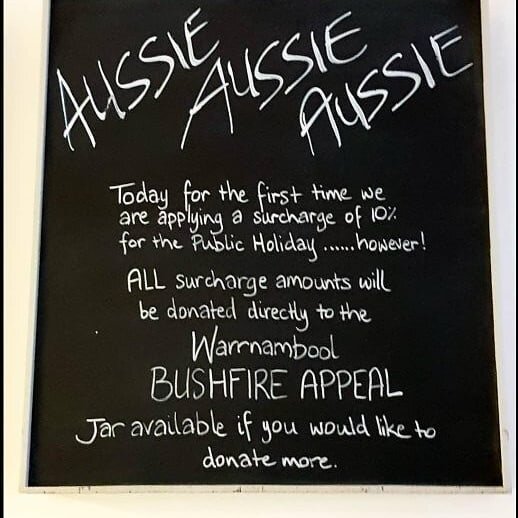 AUSSIE AUSSIE AUSSIE
Today for the first time we
are applying a surcharge of 10%
for the Public Holiday ......however!
ALL surcharge amounts will
be donated directly to the
Warrnambool
BUSHFIRE APPEAL
Jar available if you would like to
donate more.